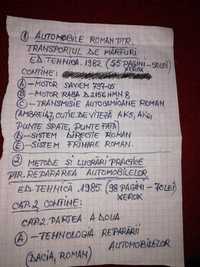 ① AUTOMOBILE ROMAN PTR.
TRANSPORTUL DE MĂRFURI
ED. TEHNICA. 1982 (55 PAGINI - 50LEI)
XEROX
CONȚINE:
Ⓐ - MOTOR SAVIEM 797-05
Ⓑ - MOTOR RABA D2156HMN8
Ⓒ - TRANSMISIE AUTOCAMIOANE ROMAN
(AMBREIAJ, CUTIE DE VITEZĂ AK5, AK6
PUNTE SPATE, PUNTE FAȚĂ)
Ⓓ - SISTEM DIRECȚIE ROMAN
Ⓔ - SISTEM FRÎNARE ROMAN.
② METODE ȘI LUCRĂRI PRACTICE
PTR. REPARAREA AUTOMOBILELOR
ED. TEHNICĂ 1985 (98 PAGINI - 70LEI)
XEROX
CAP. 2 CONȚINE:
CAP. 2. PARTEA A DOUA
Ⓐ - TEHNOLOGIA REPARĂRII
AUTOMOBILELOR
(DACIA, ROMAN)